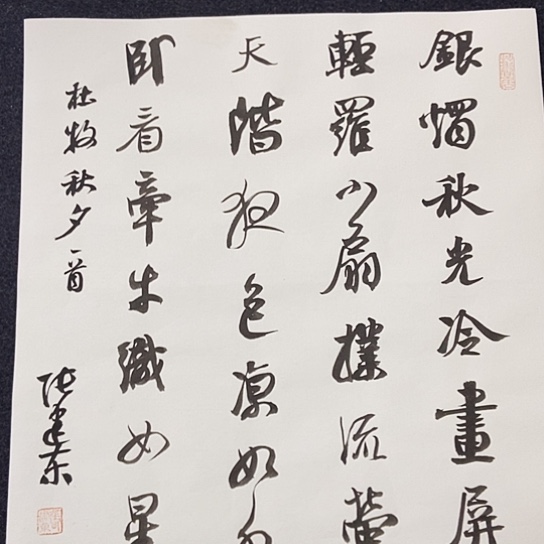 銀燭秋光冷畫屏
輕羅小扇撲流螢
天階夜色凉如水
卧看牽牛織女星
杜牧秋夕一首
張建东